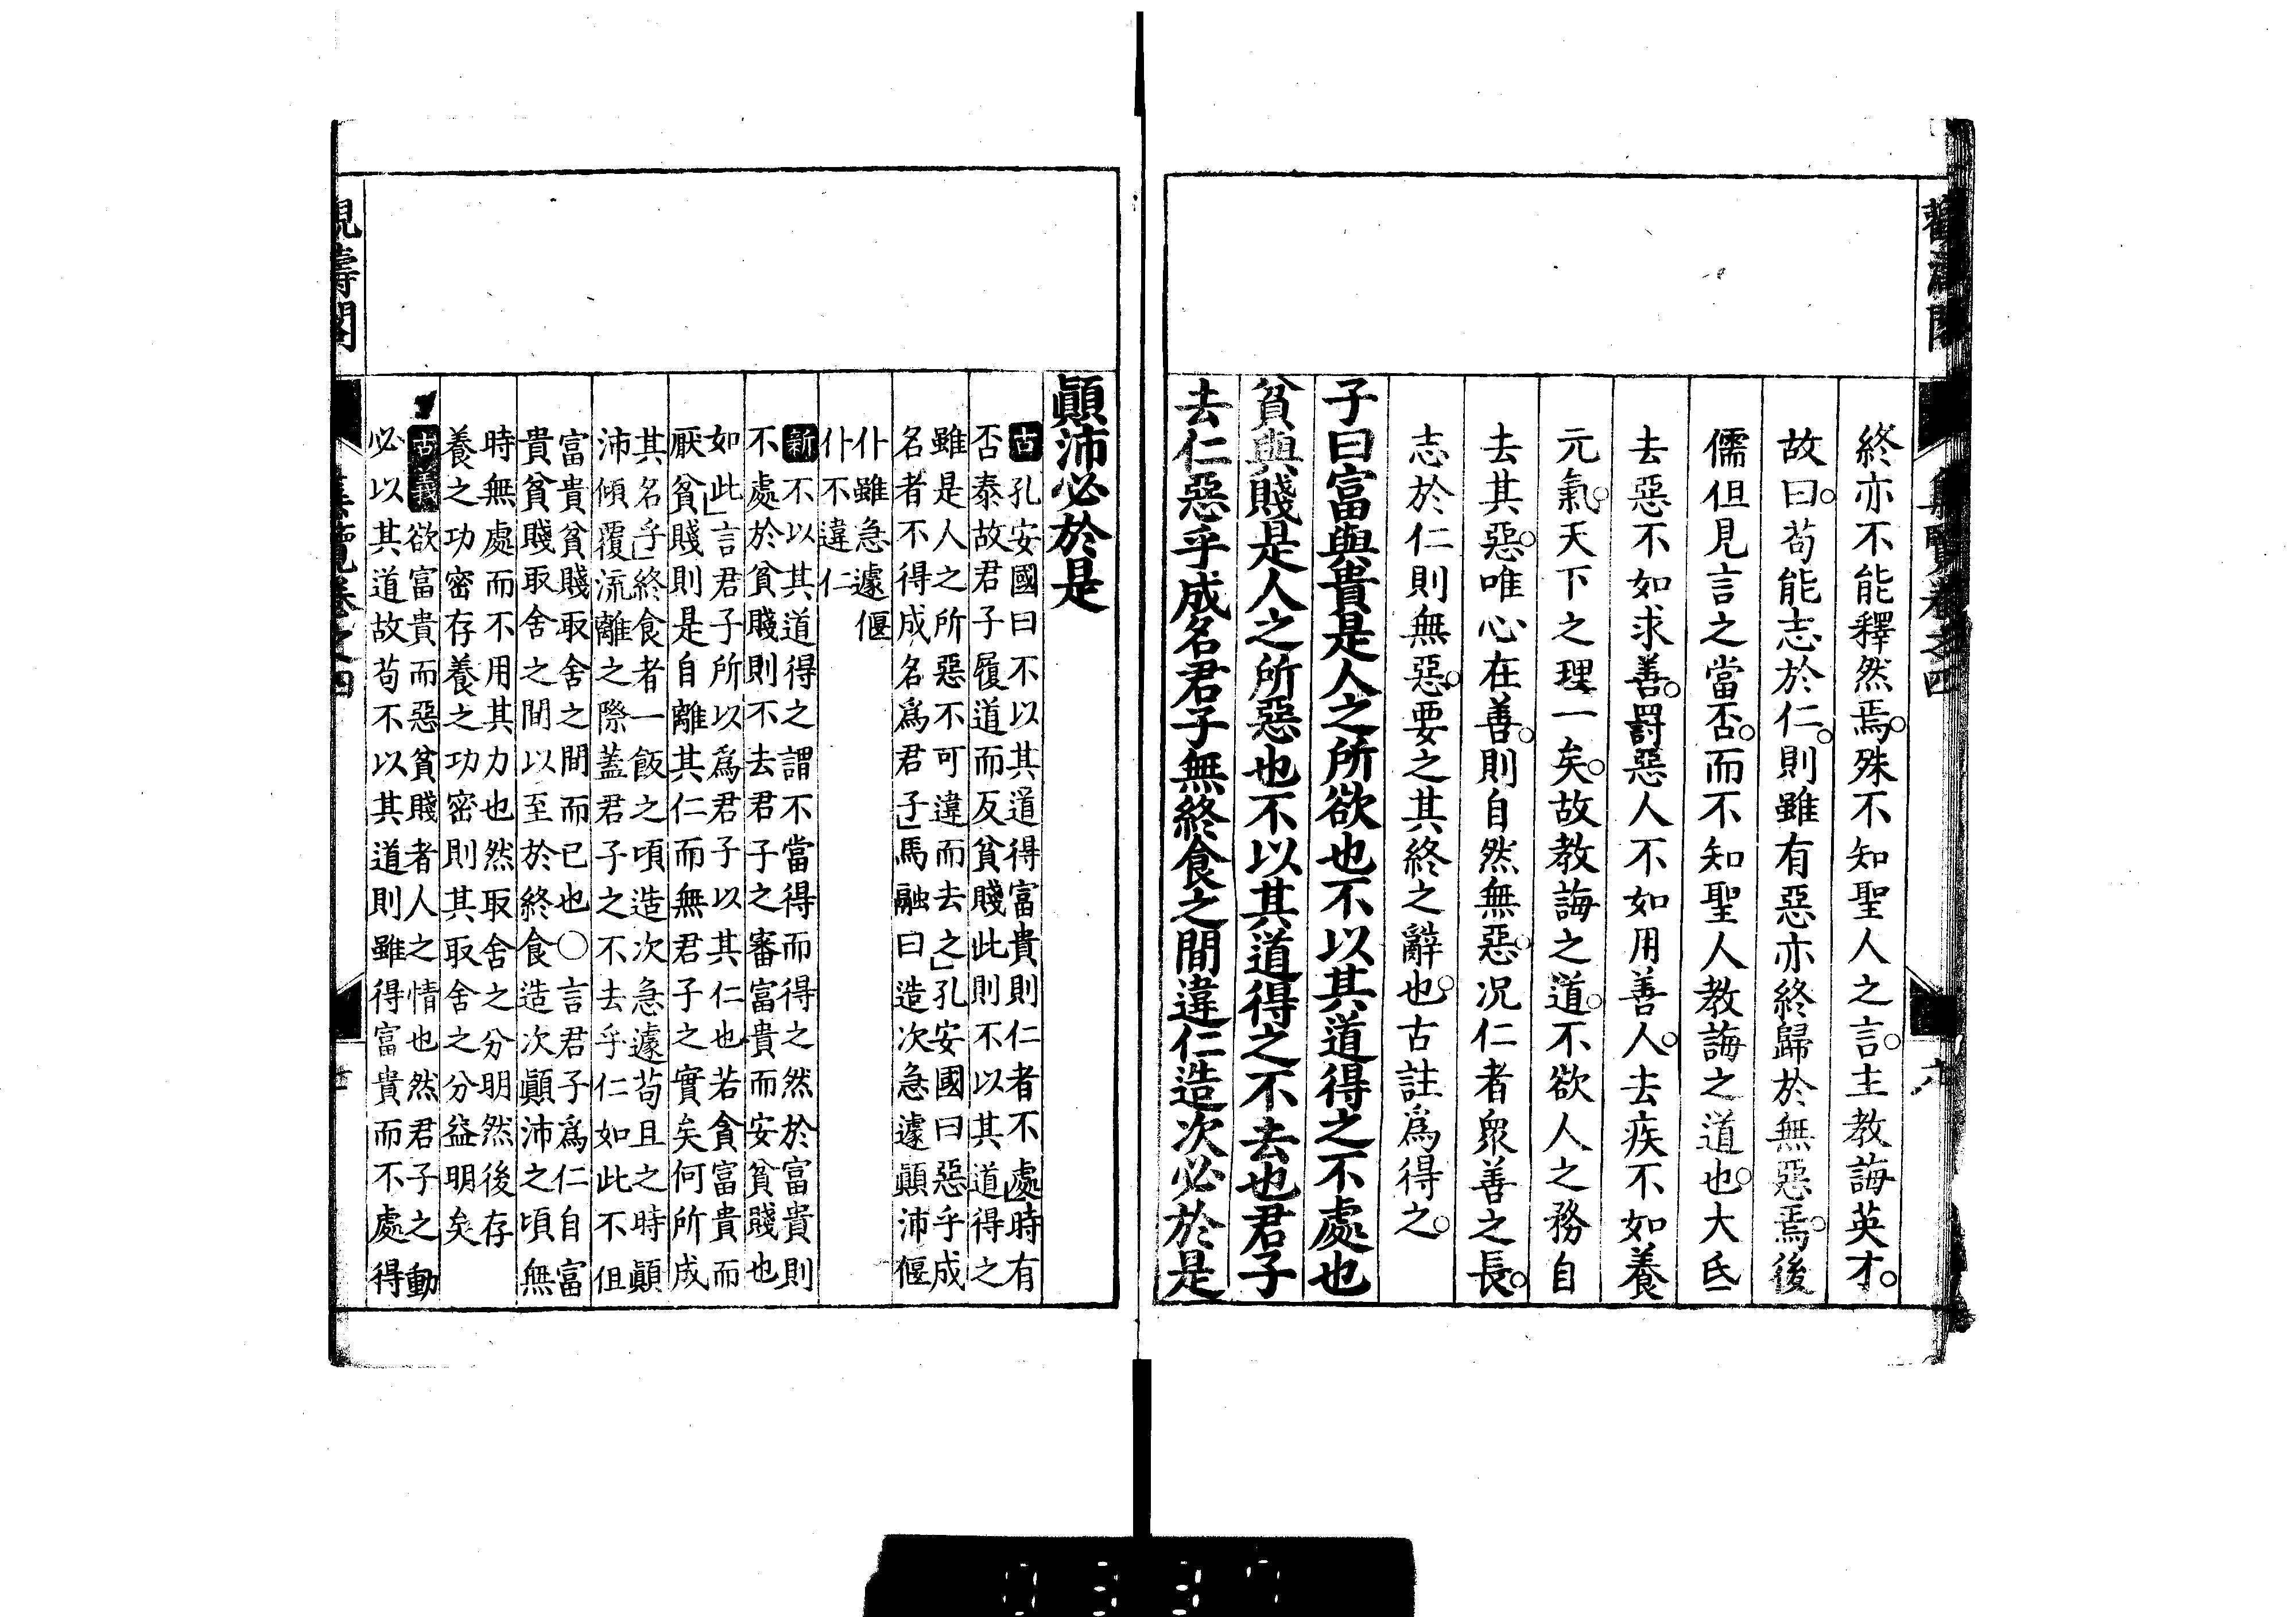 終亦不能釋然焉。殊不知聖人之言。主教誨英才。
故曰。苟能志於仁。則雖有惡亦終歸於無惡焉。後
儒但見言之當否。而不知聖人教誨之道也。大氐
去惡不如求善。罸惡人不如用善人。去疾不如養
元氣。天下之理一矣。故教誨之道。不欲人之務自
去其惡。唯心在善。則自然無惡。况仁者衆善之長。
志於仁則無惡。要之其終之辭也。古註爲得之。
子曰富與貴是人之所欲也不以其道得之不處也
貧與賤是人之所惡也不以其道得之不去也君子
去仁惡乎成名君子無終食之間違仁造次必於是
顚沛必於是
古孔安國曰不以其道得富貴則仁者不處」時有
否泰故君子履道而反貧賤此則不以其道得之
雖是人之所惡不可違而去之」孔安國曰惡乎成
名者不得成名爲君子」馬融曰造次急遽顚沛偃
仆雖急遽偃
仆不違仁
新不以其道得之謂不當得而得之然於富貴則
不處於貧賤則不去君子之審富貴而安貧賤也
如此」言君子所以爲君子以其仁也若貪富貴而
厭貧賤則是自離其仁而無君子之實矣何所成
其名乎」終食者一飯之頃造次急遽苟且之時顚
沛傾覆流離之際蓋君子之不去乎仁如此不但
富貴貧賤取舍之間而已也○言君子爲仁自富
貴貧賤取舍之間以至於終食造次顚沛之頃無
時無處而不用其力也然取舍之分明然後存
養之功密存養之功密則其取舍之分益明矣
古義欲富貴而惡貧賤者人之情也然君子之動
必以其道故苟不以其道則雖得富貴而不處得
卷之四